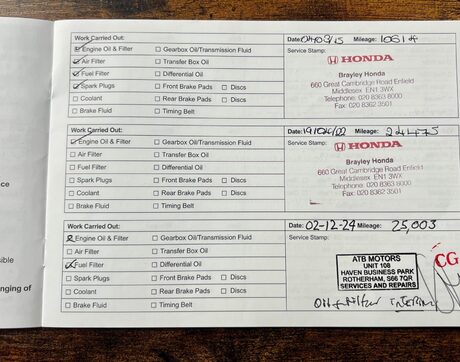 Work Carried Out:
Engine Oil & Filter
Gearbox Oil/Transmission Fluid
Air Filter
Transfer Box Oil
Fuel Filter
Differential Oil
Spark Plugs
Front Brake Pads
Discs
Coolant
Rear Brake Pads
Discs
Brake Fluid
Timing Belt
Date: Mileage:
Service Stamp:
HONDA
Brayley Honda
660 Great Cambridge Road Enfield
Middlesex EN1 3WX
Telephone: 020 8363 8000
Fax: 020 8362 3501
Work Carried Out:
Engine Oil & Filter
Gearbox Oil/Transmission Fluid
Air Filter
Transfer Box Oil
Fuel Filter
Differential Oil
Spark Plugs
Front Brake Pads
Discs
Coolant
Rear Brake Pads
Discs
Brake Fluid
Timing Belt
Date: Mileage:
Service Stamp:
HONDA
Brayley Honda
660 Great Cambridge Road Enfield
Middlesex EN1 3WX
Telephone: 020 8363 8000
Fax: 020 8362 3501
Work Carried Out:
Engine Oil & Filter
Gearbox Oil/Transmission Fluid
Air Filter
Transfer Box Oil
Fuel Filter
Differential Oil
Spark Plugs
Front Brake Pads
Discs
Coolant
Rear Brake Pads
Discs
Brake Fluid
Timing Belt
Date: 02-12-24 Mileage: 25,003
Service Stamp:
ATB MOTORS
UNIT 108
HAVEN BUSINESS PARK
ROTHERHAM, S66 7QR
SERVICES AND REPAIRS
CG